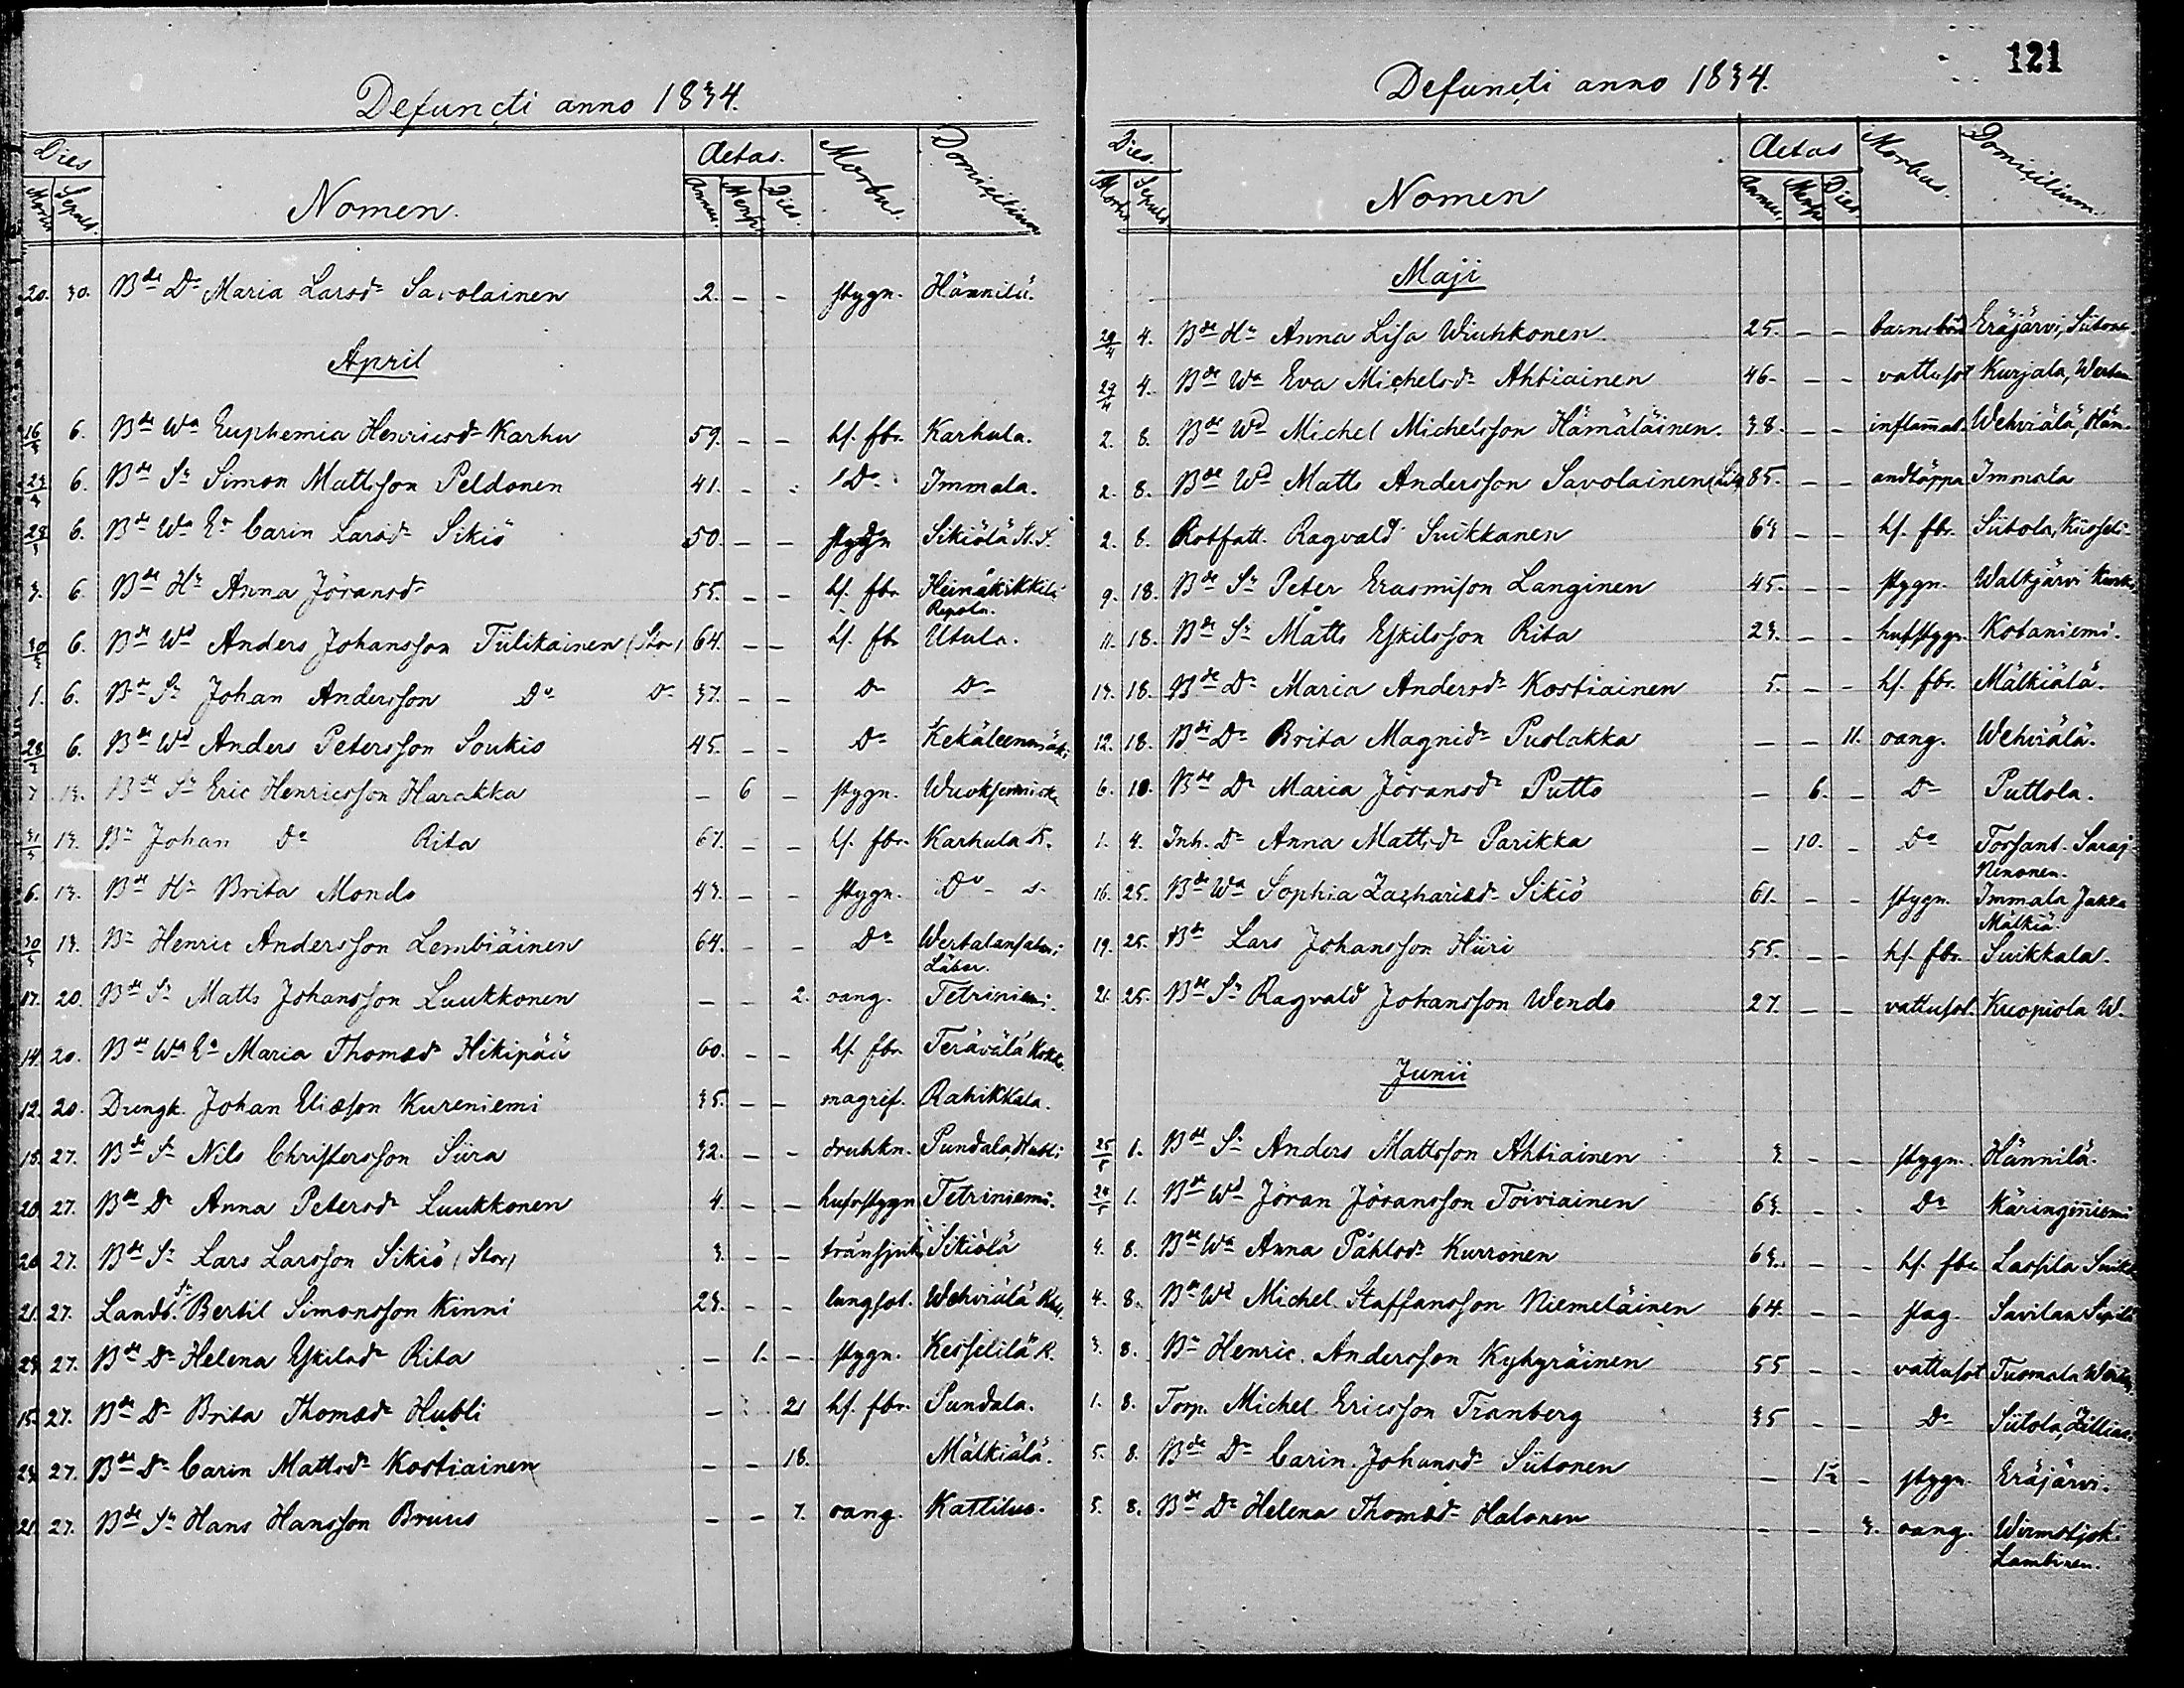 Defuncti anno 1834.
Dies Nomen. Aetas. Morbus. Domicilium
Mortis Sepult. Annus. Mens. Dies.
20. 30. Bde Dr Maria Larsdr Savolainen 2. - - stygn. Hännilä.
April
16/3 6. Bde Wa Euphemia Henricsdr Karhu 59. - - hf. fbr. Karhula.
6. Bde Sn Simon Mattsson Peldonen 41. - - Do Immala.
6. Bde Wa Ea Carin Larsdr Sikiö 50. - - stygn Sikiölä St. S.
3. 6. Bde Hu Anna Jöransdr 55. - - hf. fbr. Heinäkikkilä
Repola.
30/3 6. Bde Wd Anders Johansson Tiilikainen (Stor) 64. - - hf. fbr Utula.
1. 6. Bde Sn Johan Andersson Do Do 37. - - Do Do
6. Bde Wd Anders Petersson Soukio 45. - - Do Kekäleenmäki
7 13. Bde Sn Eric Henricsson Harakka - 6 - stygn. Wuoksenniska
31/3 13. Bn Johan Do Rita 67. - - hf. fbr. Karhula K.
6. 13. Bde Hu Brita Mondo 43. - - stygn. Do
30/3 13. Bn Henric Andersson Lembiäinen 64. - - Do Wertalansalmi
17. 20. Bde Sn Matts Johansson Luukkonen - - 2. oang. Tetriniemi.
14. 20. Bde Wa Ea Maria Thomædr Hikipää 60. - - hf. fbr. Terävälä
12. 20. Drengk. Johan Eliæson Kureniemi 35. - - magref. Rahikkala.
18. 27. Bde Sn Nils Christersson Siira 32. - - drunkn. Pundala, Hubli
20. 27. Bde Dr Anna Petersdr Luukkonen 4. - - hufvstygn Tetriniemi.
20 27. Bde Sn Lars Larsson Sikiö (Stor) 3. - - Sikiölä
21. 27. Landb. Sn Bertil Simonsson Kinni 23. - - lungsot. Wehviälä
23. 27. Bde Dr Helena Eskilsdr Rita - 1. - stygn. Kesselilä R.
15. 27. Bde Dr Brita Thomædr Hubli - 21 hf. fbr. Pundala.
23. 27. Bde Dr Carin Mattsdr Kostiainen - - 18. Mälkiälä.
21. 27. Bde Sn Hans Hansson Bruus - - 7. oang. Kattilus.
121
Defuncti anno 1834.
Dies. Nomen Aetas Morbus. Domicilium.
Mortis Sepult. Annus. Mens. Dies.
Maji
29/4 4. Bde Hu Anna Lisa Wiuhkonen 25. - - barnsbörd Eräjärvi, Siitone.
27/4 4. Bde Wa Eva Michelsdr Ahtiainen 46. - - vattusot Kurjala,
2. 8. Bde Wd Michel Michelsson Hämäläinen. 38. - - inflammat. Wehviälä, Hän.
2. 8. Bde Wd Matts Andersson Savolainen 85. - - andtäppa Immala
2. 8. Rotfatt. Ragvald Suikkanen 63 - - hf. fbr. Siitola,
9. 18. Bde Sn Peter Erasmison Langinen 45. - - stygn. Walkjärvi
11. 18. Bde Sn Matts Eskilsson Rita 23. - - hufstygn. Kotaniemi.
13. 18. Bde Dr Maria Andersdr Kostiainen 5. - - hf. fbr. Mälkiälä.
12. 18. Bde Dr Brita Magnidr Puolakka - - 11. oang. Wehviälä.
6. 10. Bde Dr Maria Jöransdr Putto - 6. - Do Puttola.
1. 4. Inh. Dr Anna Mattsdr Parikka - 10. - Do Torsant. Saraj-
Nenonen.
16. 25. Bde Wa Sophia Zachariædr Sikiö 61. - - stygn. Immala
Mälkiä.
19. 25. Bde Lars Johansson Hiiri 55. - - hf. fbr. Suikkala.
21. 25. Bde Sn Ragvald Johansson Wendo 27. - - vattusot. Kuopiola W.
Junii
25/5 1. Bde Sn Anders Mattsson Ahtiainen 3. - - stygn. Hännilä.
1. Bde Wd Jöran Jöransson Toiviainen 63. - - Do Käringinniemi
3. 8. Bde Wa Anna Påhlsdr Kurronen 63. - - hf. fbr. Lassila
4. 8. Bn Wd Michel Staffansson Niemeläinen 64. - - slag. Savilax
3. 8. Bn Henric Andersson Kyhyräinen 55 - - vattusot Tuomala
1. 8. Torp. Michel Ericsson Tranberg 35 - - Do Siitola,
5. 8. Bde Dr Carin Johansdr Siitonen - 1½ - stygn. Eräjärvi.
5. 8. Bde Dr Helena Thomædr Halonen - - 3. oang.
Lambinen.